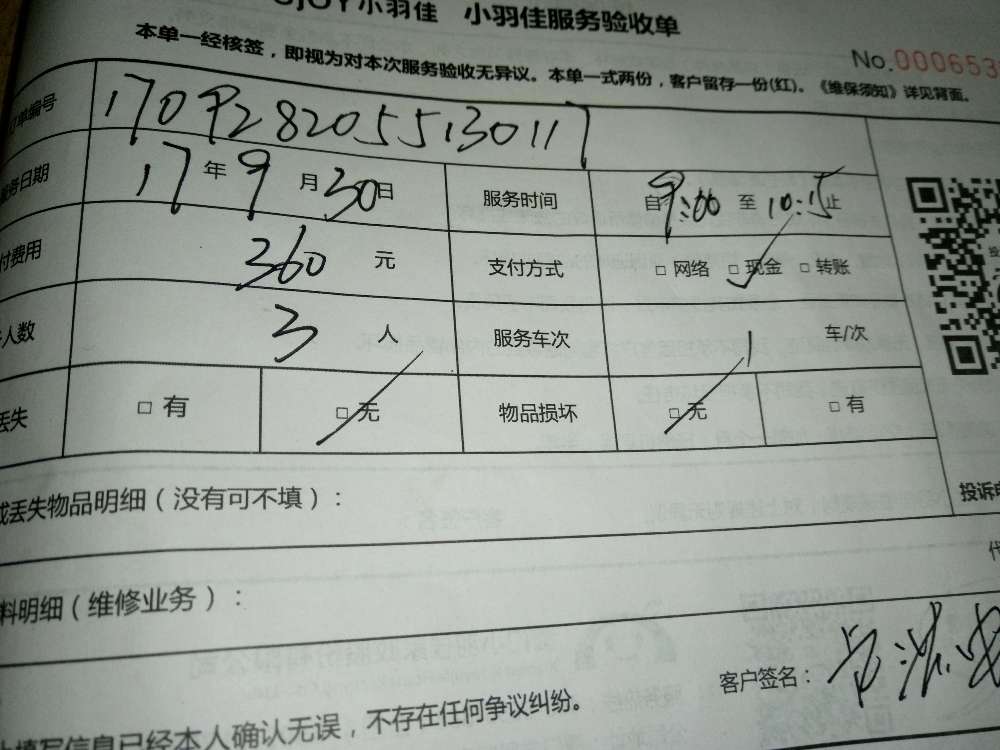 小羽佳 小羽佳服务验收单
No.000653
本单一经核签，即视为对本次服务验收无异议。本单一式两份，客户留存一份(红)。《维保须知》详见背面。
单编号 170928205513017
服务日期 17年9月30日 服务时间 自9:00至10:15止
付费用 360元 支付方式 □网络 □现金 □转账
人数 3人 服务车次 1 车/次
丢失 □有 □无 物品损坏 □无 □有
或丢失物品明细（没有可不填）：
投诉电
料明细（维修业务）：
客户签名：
填写信息已经本人确认无误，不存在任何争议纠纷。